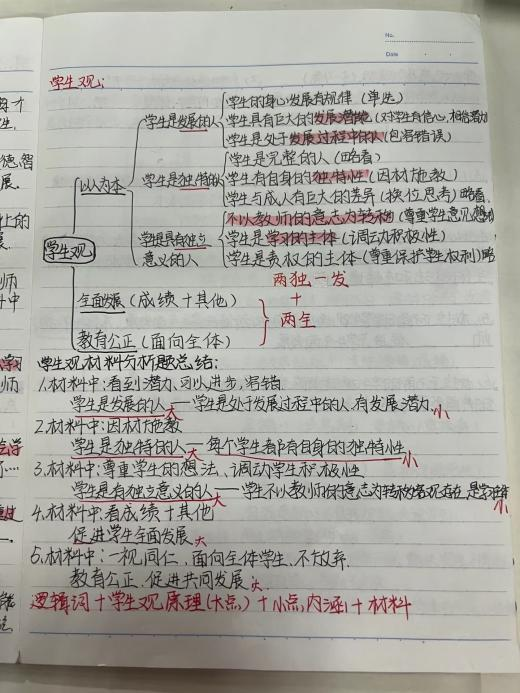 No.
Date
学生观:
学生的身心发展有规律(单选)
学生是发展的人
学生具有巨大的发展潜能(对学生有信心,相信潜力
学生是处于发展过程中的人(包容错误)
学生是完整的人(略看)
以人为本
学生是独特的人
学生有自身的独特性(因材施教)
学生与成人有巨大的差异(换位思考)略看
不以教师的意志为转移(尊重学生意见想法
学生观
学生是具有独立
意义的人
学生是学习的主体(调动积极性)
学生是责权的主体(尊重保护学生权利)略
两独一发
全面发展(成绩+其他)
+
两全
教育公正(面向全体)
学生观材料分析题总结:
1.材料中:看到潜力、可以进步,容错.
学生是发展的人大——学生是处于发展过程中的人.有发展潜力.小
2.材料中:因材施教
学生是独特的人大——每个学生都有自身的独特性小
3.材料中:尊重学生的想法、调动学生积极性
学生是有独立意义的人大——学生不以教师的意志为转移客观存在,是学习主体小
4.材料中:看成绩+其他
促进学生全面发展大
5.材料中:一视同仁,面向全体学生、不放弃.
教育公正.促进共同发展大.
逻辑词+学生观原理(大点)+小点,内涵+材料